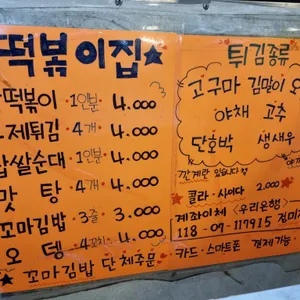 떡볶이집
떡볶이 · 1인분 · 4.000
제튀김 · 4개 · 4.000
찹쌀순대 · 1인분 · 4.000
맛탕 · 4개 · 4.000
꼬마김밥 · 3줄 · 3.000
오뎅 · 4꼬치 · 4.000
꼬마김밥 단체주문
튀김종류
고구마 김말이 오
야채 고추
단호박 생새우
깐계란 있습니다
콜라 · 사이다 2.000
계좌이체 <우리은행>
118-09-117915 정미
카드 · 스마트폰 결제가능